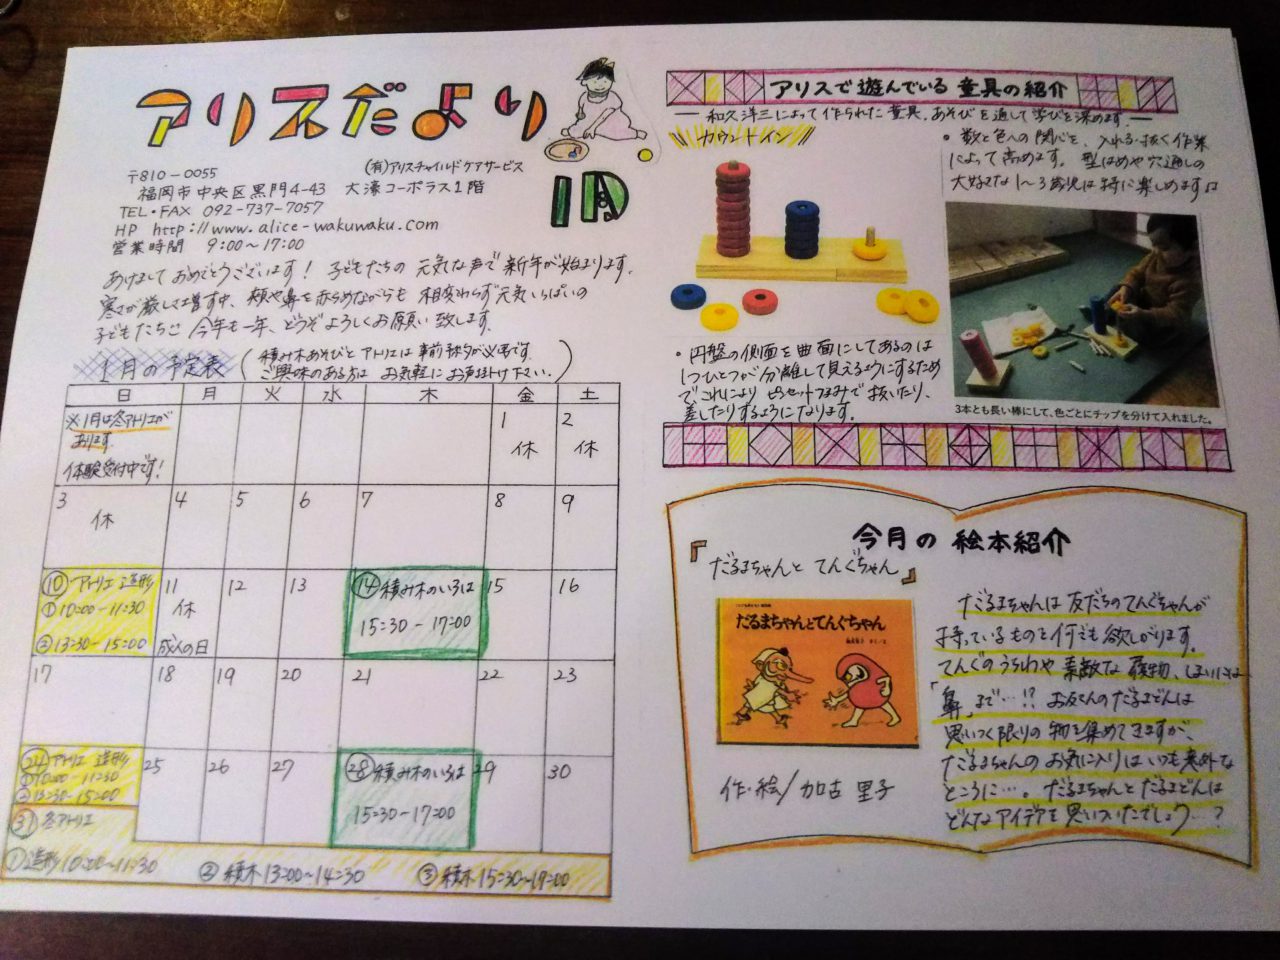 アリスだより
1月
〒810-0055
(有)アリスチャイルドケアサービス
福岡市中央区黒門4-43 大濠コーポラス1階
TEL・FAX 092-737-7057
HP http://www.alice-wakuwaku.com
営業時間 9:00~17:00
あけましておめでとうございます! 子どもたちの元気な声で新年が始まります。
寒さが厳しさ増す中、頬や鼻を赤らめながらも 相変わらず元気いっぱいの
子どもたちと 今年も一年、どうぞよろしくお願い致します。
1月の予定表
(積み木あそびとアトリエは事前予約が必要です。
ご興味のある方は お気軽にお声掛け下さい。)
日 月 火 水 木 金 土
※1月は冬アトリエが
あります
体験受付中です!
1
休
2
休
3
休
4
5
6
7
8
9
⑩アトリエ 造形
①10:00-11:30
②13:30-15:00
11
休
成人の日
12
13
⑭積み木のいろは
15:30-17:00
15
16
17
18
19
20
21
22
23
㉔アトリエ 造形
①10:00-11:30
②13:30-15:00
25
26
27
㉘積み木のいろは
15:30-17:00
29
30
㉛冬アトリエ
①造形10:00~11:30 ②積木13:00~14:30 ③積木15:30~17:00
アリスで遊んでいる 童具の紹介
― 和久洋三によって作られた童具。あそびを通して学びを深めます。―
カウントイン
・数と色への関心を、入れる・抜く作業
によって高めます。型はめや穴通しの
大好きな1~3歳児は特に楽しめますよ
・円盤の側面を曲面にしてあるのは
1つひとつが分離して見えるようにするため
でこれによりピンセットつまみで抜いたり、
差したりするようになります。
3本とも長い棒にして、色ごとにチップを分けて入れました。
今月の 絵本紹介
『だるまちゃんと てんぐちゃん』
だるまちゃんとてんぐちゃん
作・絵/加古 里子
だるまちゃんは友だちのてんぐちゃんが
持っているものを何でも欲しがります。
てんぐのうちわや 素敵な履物、しまいには
「鼻」まで…!? お父さんのだるまどんは
思いつく限りの物を集めてきますが、
だるまちゃんのお気に入りはいつも意外な
ところに…。だるまちゃんとだるまどんは
どんなアイデアを思いついたでしょう…?